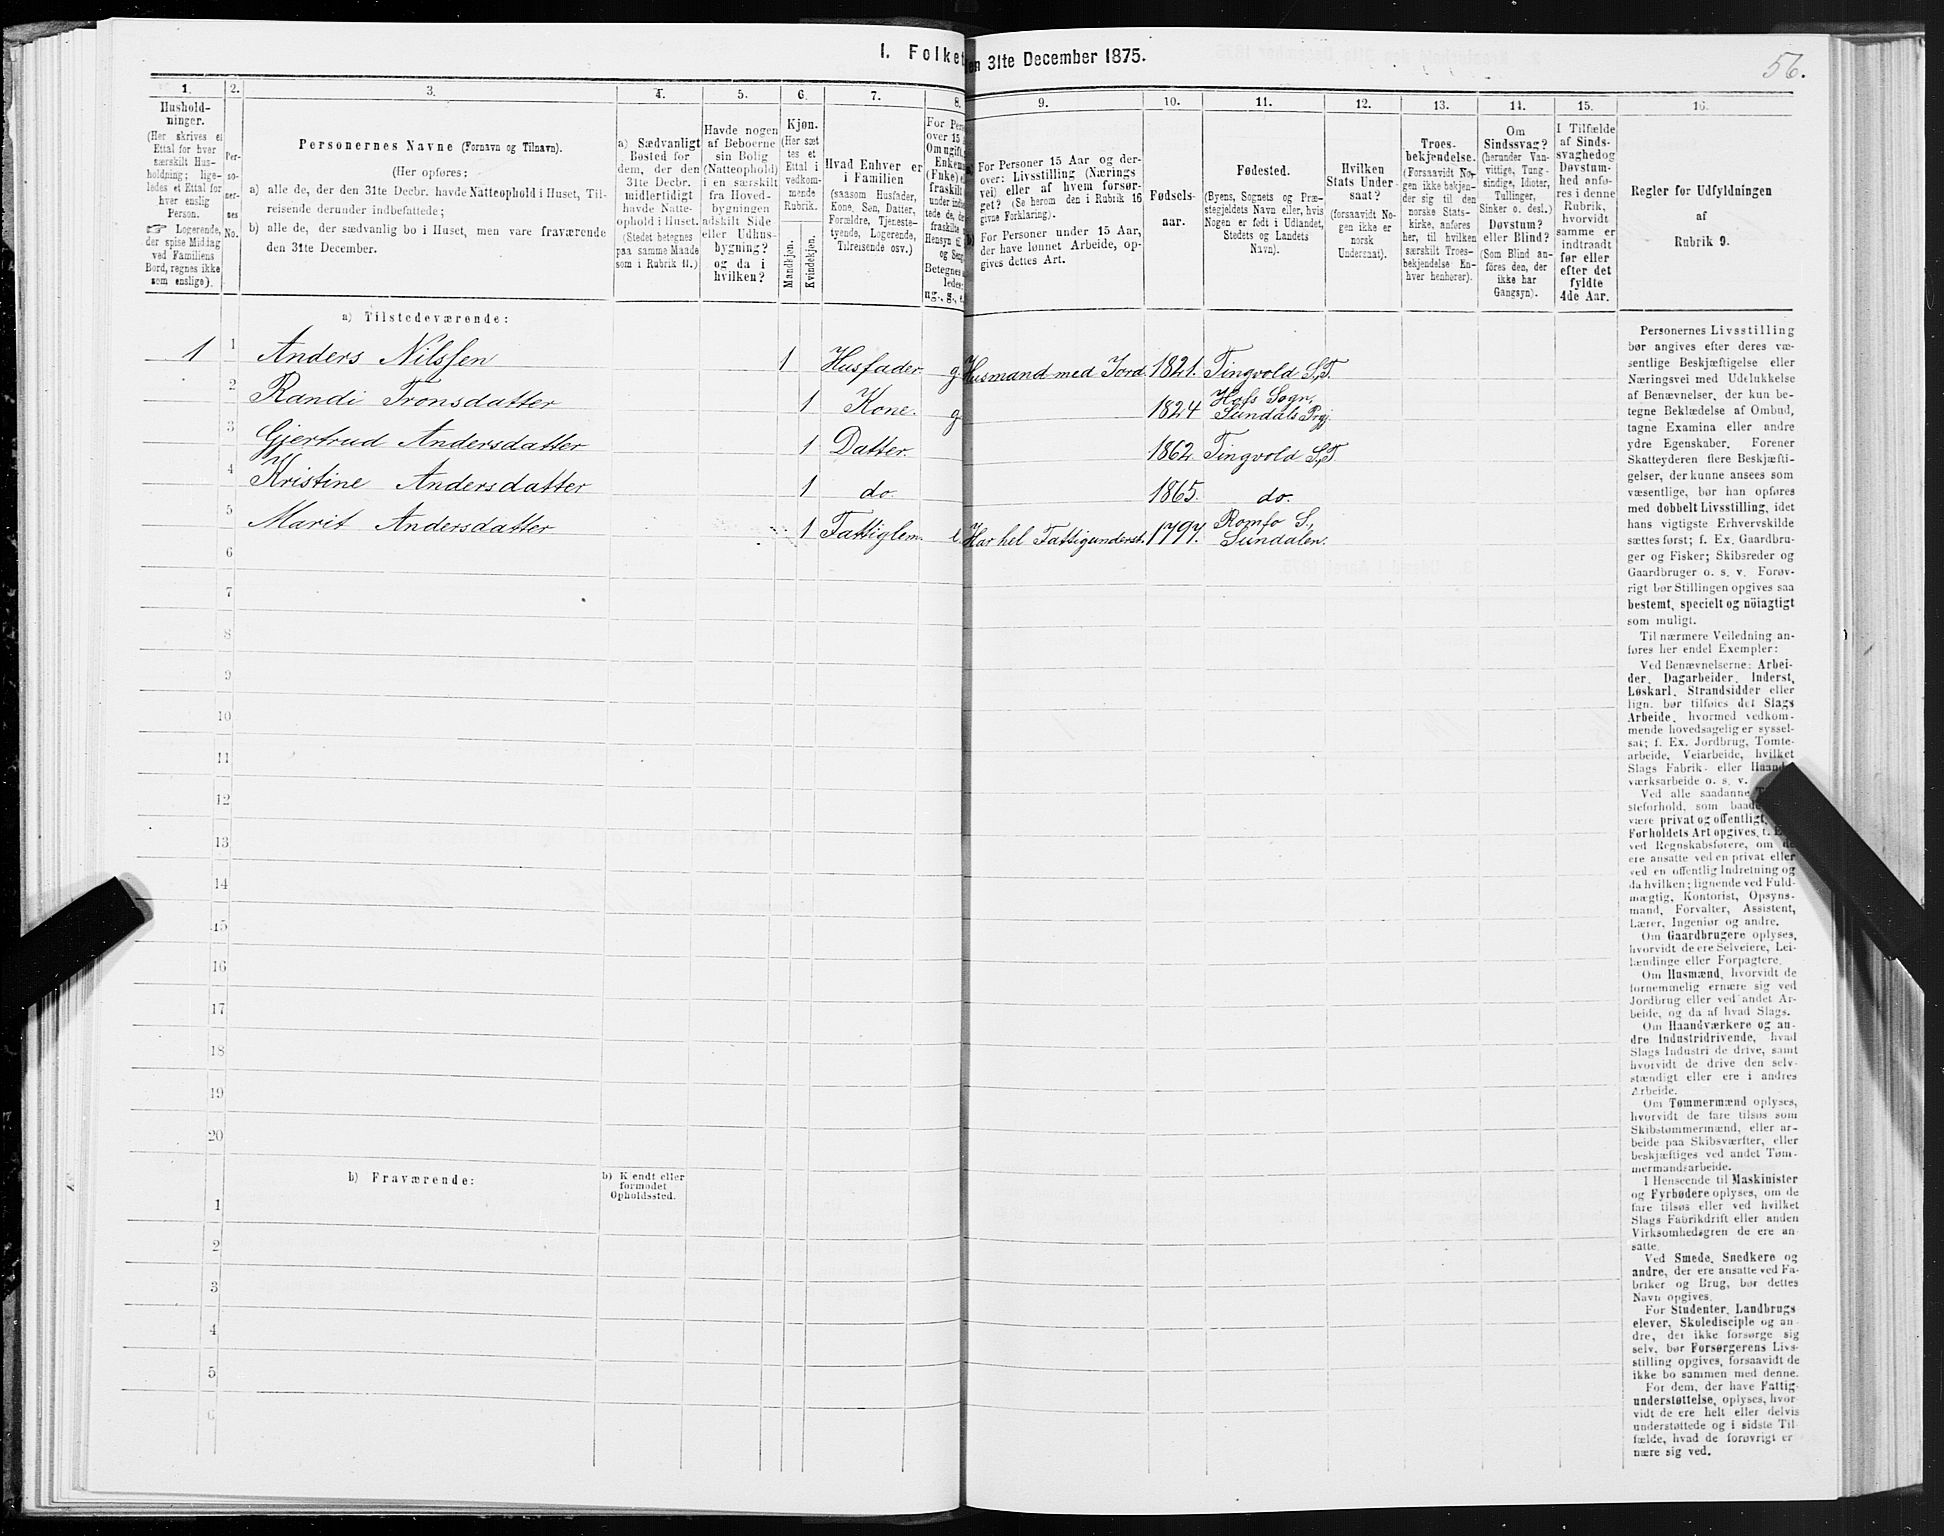 1. Folket
en 31te December 1875.
56.
1.
2.
3.
4.
5.
6.
7.
8.
9.
10.
11.
12.
13.
14.
15.
16.
Hushold-
ninger.
(Her skrives et
Ettal for hver
særskilt Hus-
holdning; lige-
ledes et Ettal for
hver enslig
Person.
☞ Logerende,
der spise Middag
ved Familiens
Bord, regnes ikke
som enslige).
Per-
so-
ner-
nes
No.
Personernes Navne (Fornavn og Tilnavn).
(Her opføres:
a) alle de, der den 31te Decbr. havde Natteophold i Huset, Til-
reisende derunder indbefattede;
b) alle de, der sædvanlig bo i Huset, men vare fraværende
den 31te December.
a) Sædvanligt
Bosted for
dem, der den
31te Decbr.
midlertidigt
havde Natte-
ophold i Huset.
(Stedet betegnes
paa samme Maade
som i Rubrik 11.)
Havde nogen
af Beboerne
sin Bolig
(Natteophold)
i en særskilt
fra Hoved-
bygningen
adskilt Side
eller Udhus-
bygning?
og da i
hvilken?
Kjøn.
(Her sæt
tes et
Ettal i
vedkom-
mende
Rubrik.
Mandkjøn.
Kvindekjøn.
Hvad Enhver er
i Familien
(saasom Husfader,
Kone, Søn, Datter,
Forældre, Tjeneste-
tyende, Logerende,
Tilreisende osv.)
For Pers
over 15 a
Om ugift,
Enkema
(Enke) e
fraskilt
under indb
tede de, de
fraskilte
Hensyn til
og Seng
Betegnes s
ledes:
ug., g., e.
a) For Personer 15 Aar og der-
over: Livsstilling (Nærings
vei) eller af hvem forsør-
get? (Se herom den i Rubrik 16
givne Forklaring).
b) For Personer under 15 Aar,
der have lønnet Arbeide, op-
gives dettes Art.
Fødsels-
aar.
Fødested.
(Byens, Sognets og Præ-
stegjeldets Navn eller, hvis
Nogen er født i Udlandet,
Stedets og Landets
Navn).
Hvilken
Stats Under
saat?
(forsaavidt No-
gen ikke er
norsk
Undersaat).
Troes-
bekjendelse.
(Forsaavidt No-
gen ikke bekjen-
der sig til den
norske Stats-
kirke, anføres
her, til hvilken
særskilt Troes-
bekjendelse En-
hver henhører).
Om
Sindssvag?
(herunder Van-
vittige, Tung-
sindige, Idioter,
Tullinger,
Sinker o. desl.)
Døvstum?
eller Blind?
(Som Blind an-
føres den, der
ikke har
Gangsyn).
I Tilfælde
af Sinds-
svaghedog
Døvstum-
hed anfø-
res i denne
Rubrik,
hvorvidt
samme er
indtraadt
før eller
efter det
fyldte
4de Aar.
Regler for Udfyldningen
af
Rubrik 9.
a) Tilstedeværende:
1 1 Anders Nilssen 1 Husfader g Husmand med Jord. 1821. Tingvold S,T.
2 Randi Tronsdatter 1 Kone. g 1824 Hofs Sogn, Sundals Prgj
3 Gjertrud Andersdatter 1 Datter. 1862. Tingvold S,T
4 Kristine Andersdatter 1 do. 1865. do.
5 Marit Andersdatter 1 Fattiglem. e. Har hel Fattigunderst. 1797. Romfo S., Sundalen.
6
7
8
9
10
11
12
13
14
15
16
17
18
19
20
b) Fraværende:
b) Kjendt eller
formodet
Opholdssted.
1
2
3
4
5
6
Personernes Livsstilling
bør angives efter deres væ-
sentlige Beskjæftigelse eller
Næringsvei med Udelukkelse
af Benævnelser, der kun be-
tegne Beklædelse af Ombud,
tagne Examina eller andre
ydre Egenskaber. Forener
Skatteyderen flere Beskjæfti-
gelser, der kunne ansees som
væsentlige, bør han opføres
med dobbelt Livsstilling, idet
hans vigtigste Erhvervskilde
sættes først; f. Ex. Gaardbru-
ger og Fisker; Skibsreder og
Gaardbruger o. s. v. Forøv-
rigt bør Stillingen opgives saa
bestemt, specielt og nöiagtigt
som muligt.
Til nærmere Veiledning an-
føres her endel Exempler:
Ved Benævnelserne: Arbei-
der, Dagarbeider, Inderst,
Løskarl, Strandsidder eller
lign. bør tilføies det Slags
Arbeide, hvormed vedkom-
mende hovedsagelig er syssel-
sat; f. Ex. Jordbrug, Tomte-
arbeide, Veiarbeide, hvilket
Slags Fabrik- eller Haand-
værksarbeide o. s. v.
Ved alle saadanne
steforhold, som baade
være privat og offentligt,
Forholdets Art opgives, f. E
ved Regnskabsførere, om de
ere ansatte ved en privat eller
ved en offentlig Indretning og
da hvilken; lignende ved Fuld-
mægtig, Kontorist, Opsyns-
mand, Forvalter, Assistent,
Lærer, Ingeniør og andre.
Om Gaardbrugere oplyses,
hvorvidt de ere Selveiere, Lei-
lændinge eller Forpagtere.
Om Husmænd, hvorvidt de
fornemmelig ernære sig ved
Jordbrug eller ved andet Ar-
beide, og da af hvad Slags.
Om Haandværkere og an-
dre Industridrivende, hvad
Slags Industri de drive, samt
hvorvidt de drive den selv-
stændigt eller ere i andres
Arbeide.
Om Tømmermænd oplyses,
hvorvidt de fare tilsøs som
Skibstømmermænd, eller ar-
beide paa Skibsværfter, eller
beskjæftiges ved andet Tøm-
mermandsarbeide.
I Henseende til Maskinister
og Fyrbødere oplyses, om de
fare tilsøs eller ved hvilket
Slags Fabrikdrift eller anden
Virksomhedsgren de ere an-
satte.
Ved Smede, Snedkere og
andre, der ere ansatte ved Fa-
briker og Brug, bør dettes
Navn opgives.
For Studenter, Landbrugs
elever, Skoledisciple og an-
dre, der ikke forsørge sig
selv, bør Forsørgerens Livs-
stilling opgives, forsaavidt de
ikke bo sammen med denne.
For dem, der have Fattig-
understøttelse, oplyses, hvor-
vidt de ere helt eller delvis
understøttede og i sidste Til-
fælde, hvad de forøvrigt er
nære sig ved.